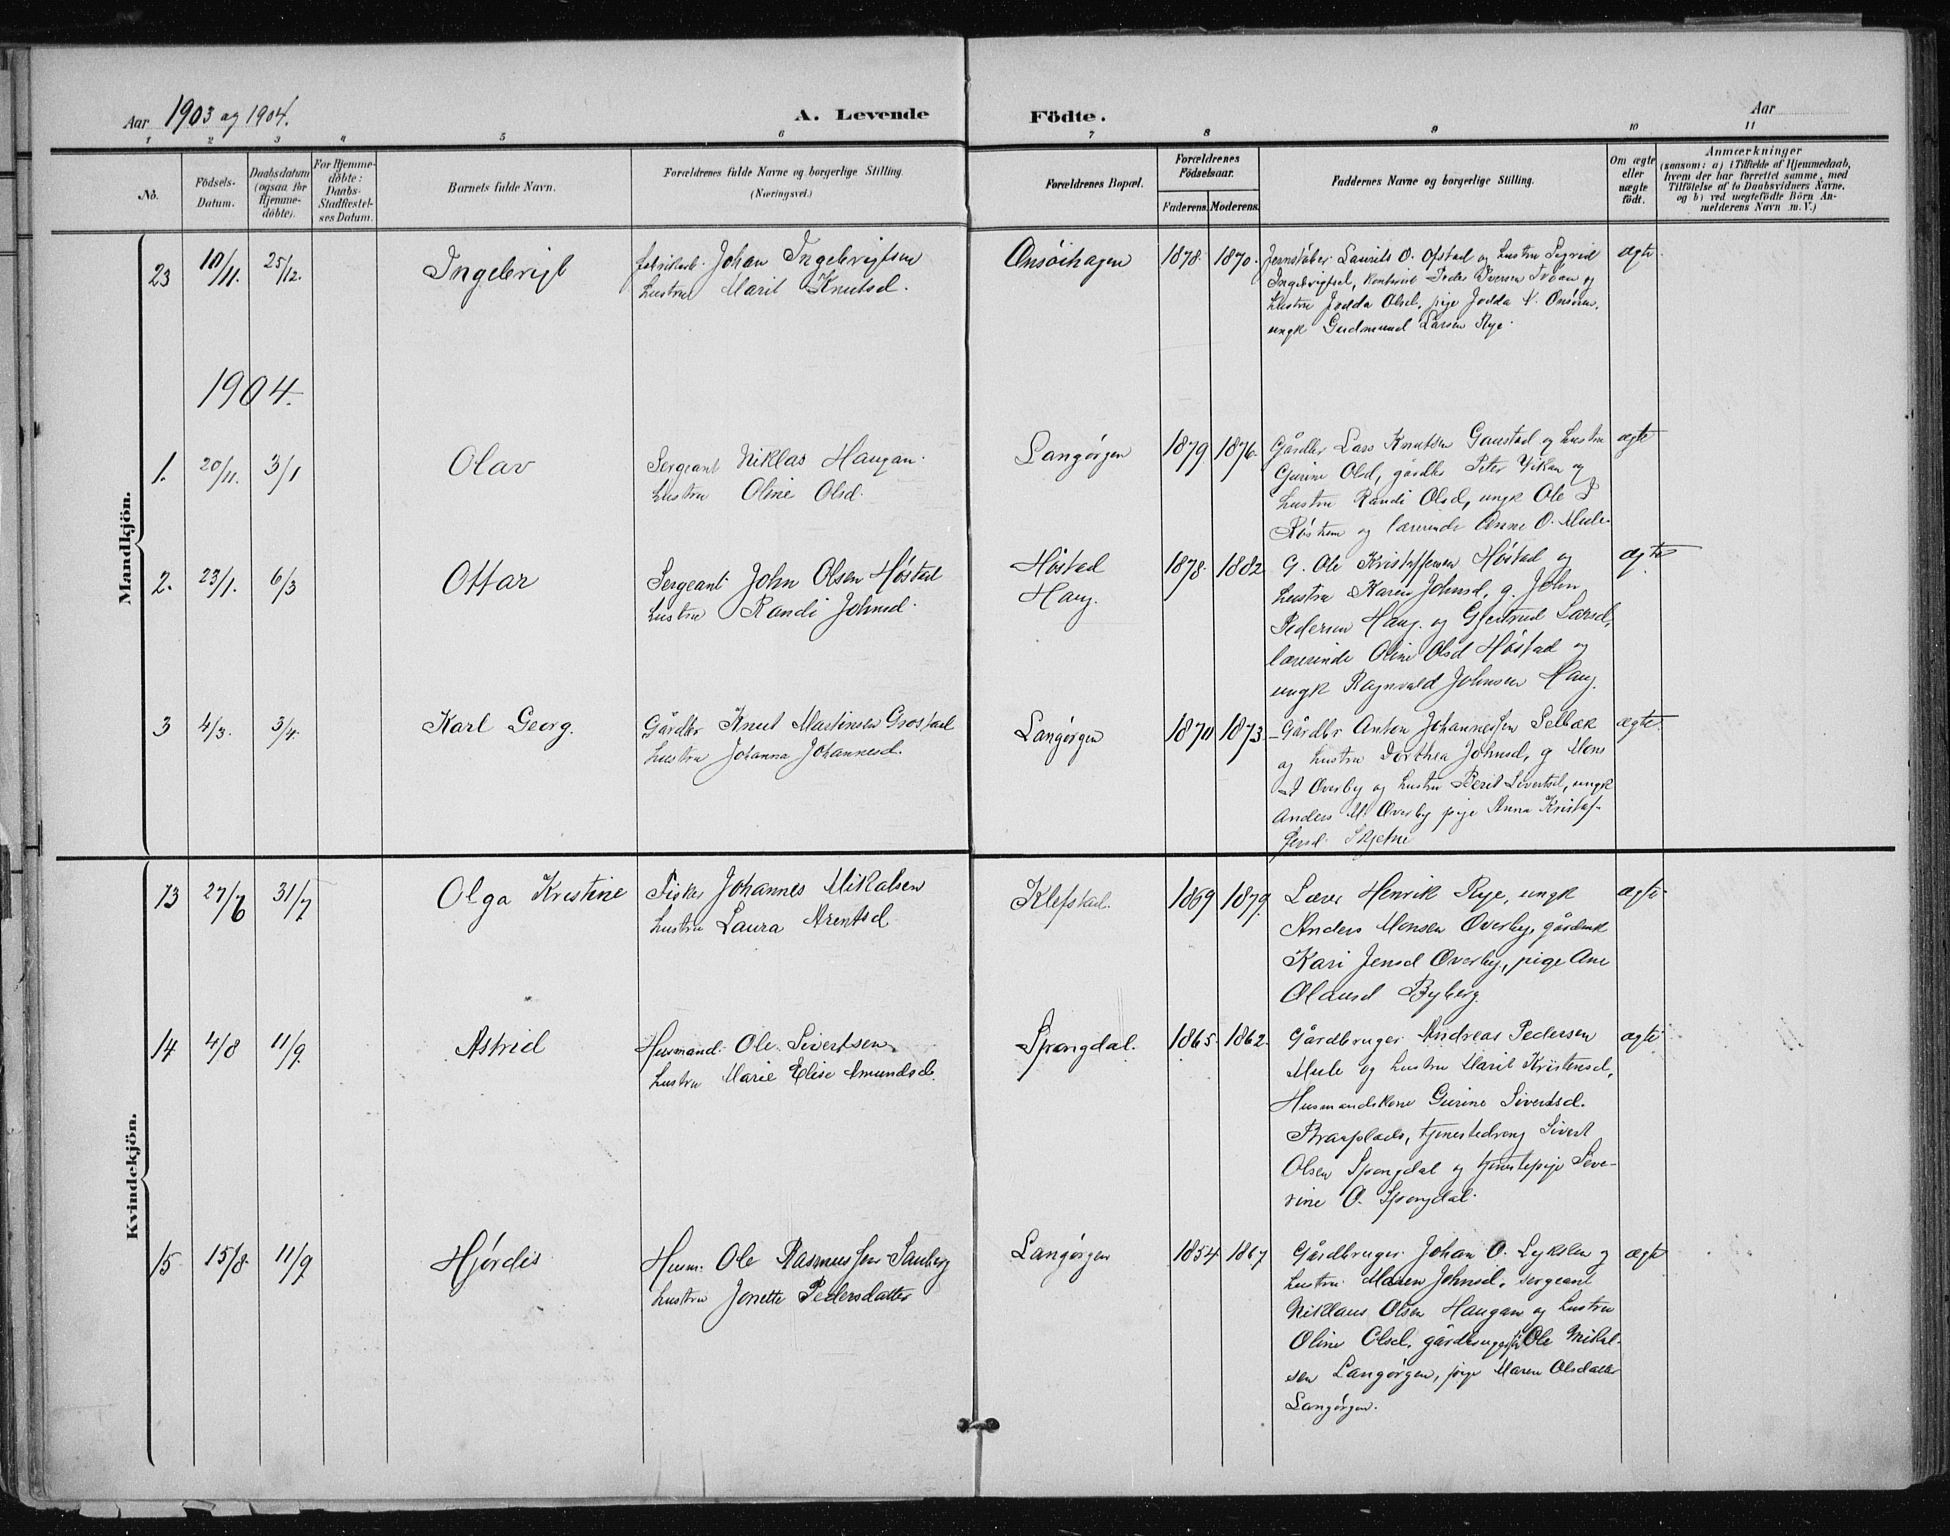 Aar 1903 og 1904. A. Levende Födte. Aar
1 2 3 4 5 6 7 8 9 10 11
No.
Födsels-
Datum.
Daabsdatum
(ogsaa for
Hjemme-
döbte).
For Hjemme-
döbte:
Daabs-
Stadfæstel-
ses Datum.
Barnets fulde Navn.
Forældrenes fulde Navne og borgerlige Stilling.
(Næringsvei.)
Forældrenes Bopæl.
Forældrenes
Födselsaar.
Faderens. Moderens.
Faddernes Navne og borgerlige Stilling.
Om ægte
eller
uægte
födt.
Anmærkninger
(saasom: a) i Tilfælde af Hjemmedaab,
hvem der har forrettet samme, med
Tilföielse af to Daabsvidners Navne,
og b) ved uægtefödte Börn An-
melderens Navn m. V.)
Mandkjön.
23 10/11. 25/12. Ingebrigt
Johan Ingebrigtsen
hustru Marit Knutsd.
Onsöihagen 1878. 1870.
Jernstøber Laurits O. Ofstad og hustru Sigrid
Ingebrigtsd, Peder Iversen og
hustru Jodda Olsd, pige Jodda
ungk Gudmund Larsen Rye.
ægte
1904.
1. 20/11. 3/1 Olav
Sergeant Niklas Haugan.
hustru Oline Olsd.
Langørgen 1879 1876.
Gårdbr Lars Knutsen Gaustad og hustru
Gurine Olsd, gårdbr Peter Vikan og
hustru Randi Olsd, ungk Ole
og lærerinde Anne O. Mule.
ægte
2. 23/1. 6/3 Ottar
Sergeant John Olsen Høstad
hustru Randi Johnsd.
Høstad
Haug.
1878. 1882
G. Ole Kristoffersen Høstad og
hustru Karen Johnsd, g. John
Pedersen Haug. og Gjertrud Larsd,
lærerinde Oline Olsd Høstad og
ungk Ragnvald Johnsen Haug.
ægte
3 4/3. 3/4. Karl Georg.
Gårdbr Knut Martinsen Grostad
hustru Johanna Johannesd.
Langørgen 1870 1873.
Gårdbr Anton Johannessen Selbæk
og hustru Dorthea Johnsd, g Mons
A Overby og hustru Berit Sivertsd, ungk
Anders M. Overby pige Anna Kristof-
fersd. Skjetne
ægte.
Kvindekjön.
13 27/6 31/7 Olga Kristine
Fisker Johannes Mikalsen
hustru Laura Arentsd.
Klefstad. 1869 1879.
Lærer Henrik Rye, ungk
Anders Monsen Overby, gårdmk
Kari Jensd Overby, pige Ane
Olausd Byberg.
ægte
14 4/8 11/9. Astrid
Husmand. Ole Sivertsen
hustru Marie Elise Amundsd.
Spongdal. 1865. 1862.
Gårdbruger Andreas Pedersen
Mule og hustru Marit Kristensd,
Husmandskone Gurine Sivertsd.
Braaplads, tjenestedreng Sivert
Olsen Spongdal og tjenestepige Seve-
rine O. Spongdal.
ægte
15 15/8. 11/9 Hjørdis
Husm. Ole Rasmussen Sanberg
hustru Jonette Pedersdatter
Langørgen 1854 1867
Gårdbruger Johan O. Lykslen og
hustru Maren Johnsd, sergeant
Niklaus Olsen Haugan og hustru
Oline Olsd, gårdbruger Ole Mikal-
sen Langørgen, pige Maren Olsdatter
Langørgen.
ægte